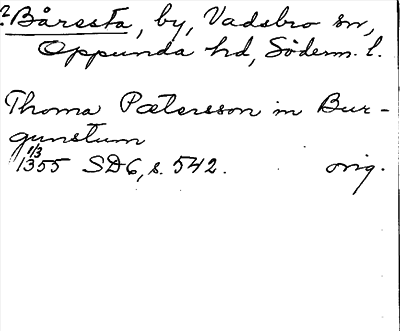 ? Båresta, by, Vadsbro sn,
Oppunda hd, Söderm. l.
Thoma Pætersson in Bur-
gunstum
1/3
1355 SD6, s. 542. orig.